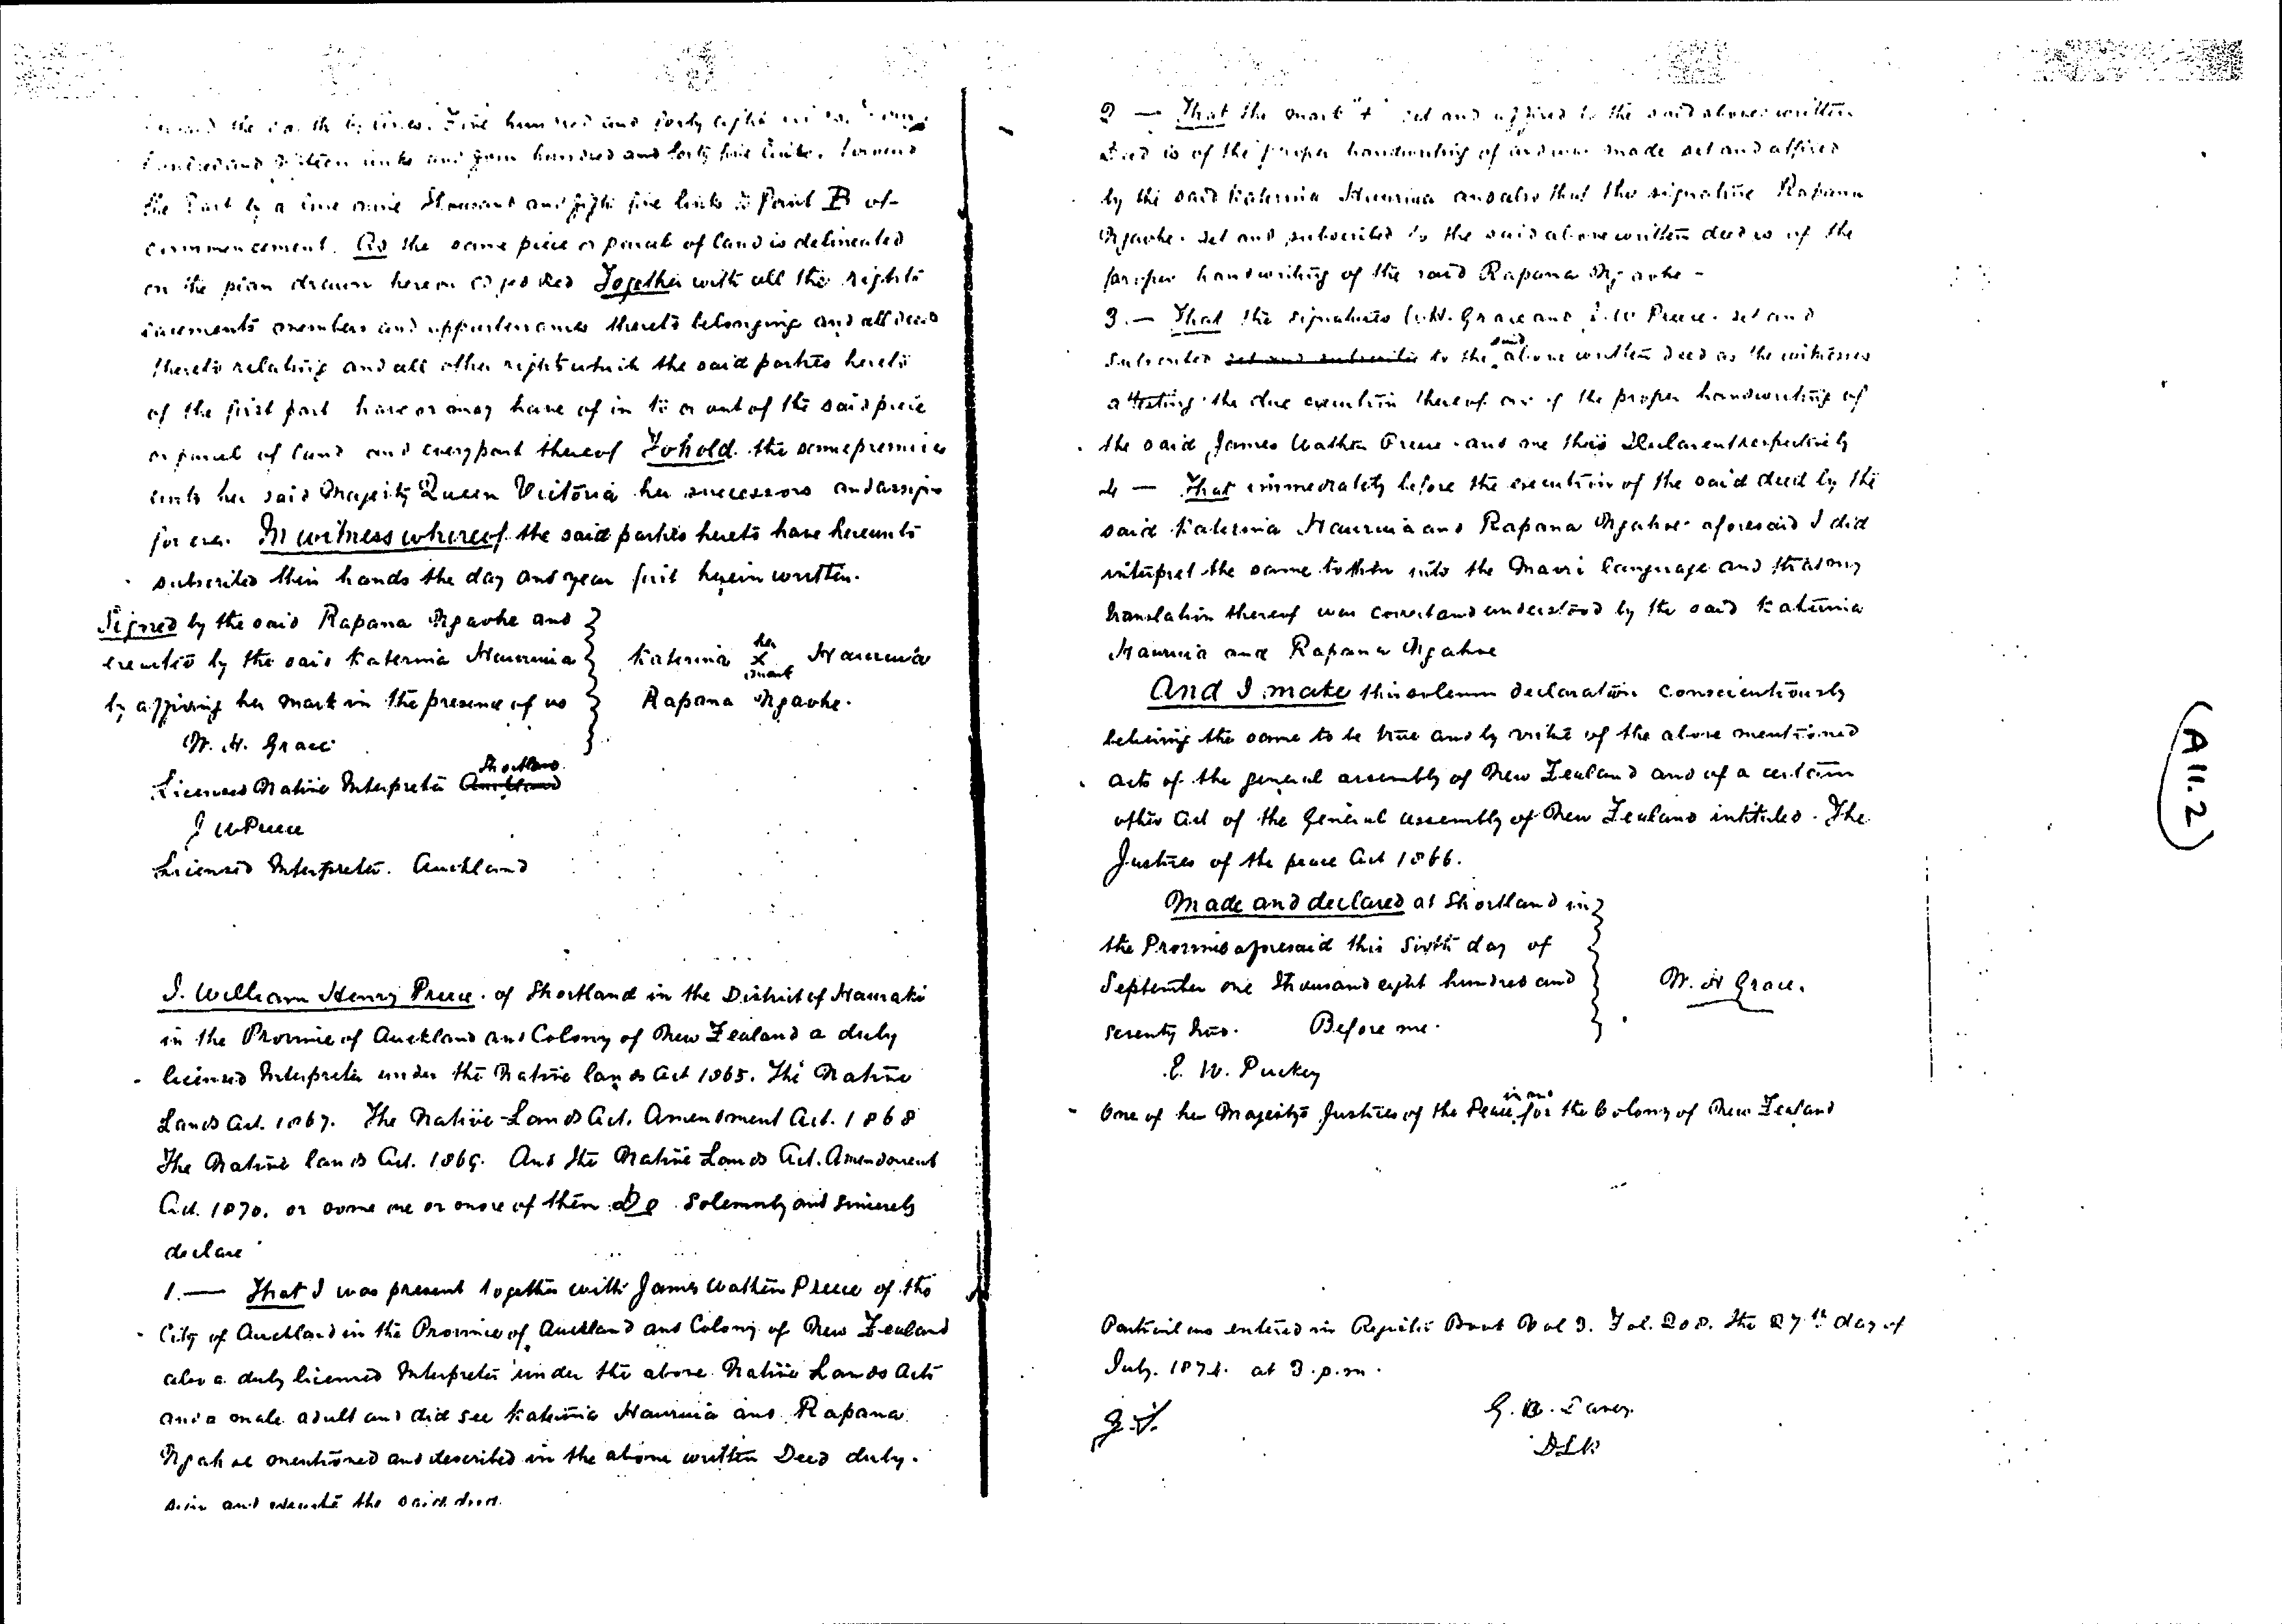 the south by lines. Five hundred and forty eight
hundred and fifteen links and four hundred and forty five links. Toward
the East by a line nine thousand and fifty five links to point B of
commencement. As the same piece or parcel of land is delineated
on the plan drawn hereon Together with all the rights
easements members and appurtenances thereto belonging and all deeds
thereto relating and all other rights which the said parties hereto
of the first part have or may have of in to or out of the said piece
or parcel of land and every part thereof To hold the same premises
unto her said Majesty Queen Victoria her successors and assigns
for ever. In witness whereof the said parties hereto have hereunto
subscribed their hands the day and year first herein written.
Signed by the said Rapana Ngaohe and
executed by the said Katerina Hauruia
by affixing her mark in the presence of us
Katerina her X mark Hauruia
Rapana Ngaohe.
W. H. Grace
Licensed Native Interpreter Auckland Shortland
J W Preece
Licensed Interpreter. Auckland
I. William Henry Preece. of Shortland in the District of Hauraki
in the Province of Auckland and Colony of New Zealand a duly
licensed Interpreter under the Native lands Act 1865. The Native
Lands Act. 1867. The Native Lands Act. Amendment Act. 1868
The Native lands Act. 1869. And the Native Lands Act. Amendment
Act. 1870. or some one or more of them Do Solemnly and sincerely
declare
1. — That I was present together with James Wathen Preece of the
City of Auckland in the Province of Auckland and Colony of New Zealand
also a duly licensed Interpreter under the above Native Lands Acts
and a male adult and did see Katerina Hauruia and Rapana
Ngahoe mentioned and described in the above written Deed duly.
sign and execute the said deed.
2 — That the mark "+" set and affixed to the said above written
Deed is of the proper handwriting of and was made set and affixed
by the said Katerina Hauruia and also that the signature Rapana
Ngaohe. set and subscribed to the said above written deed is of the
proper handwriting of the said Rapana Ngaohe -
3. — That the signatures W.H. Grace and J. W Preece. set and
subscribed set and subscribed to the said above written deed as the witnesses
attesting the due execution thereof are of the proper handwriting of
the said James Wathen Preece. and me this Declarent respectively
4 — That immediately before the execution of the said deed by the
said Katerina Hauruia and Rapana Ngahoe aforesaid I did
interpret the same to them into the Maori language and that my
translation thereof was correct and understood by the said Katerina
Hauruia and Rapana Ngahoe
And I make this solemn declaration conscientiously
believing the same to be true and by virtue of the above mentioned
acts of the general assembly of New Zealand and of a certain
other Act of the General assembly of New Zealand intituled. The
Justices of the peace Act 1866.
Made and declared at Shortland in
the Province aforesaid this Sixth day of
September one thousand eight hundred and
seventy two. Before me.
W. H Grace.
E. W. Puckey
One of her Majesty's Justices of the Peace in and for the Colony of New Zealand
Particulars entered in Register Book Vol 3. Fol. 208. the 27th day of
July. 1874. at 3.p.m.
D L R
(A11.2)